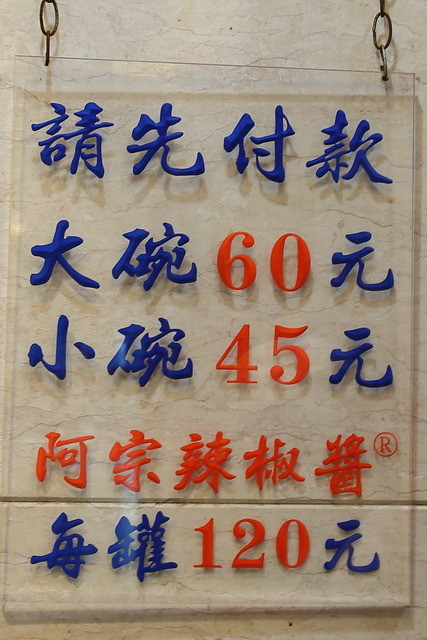 請先付款
大碗60元
小碗45元
阿宗辣椒醬®
每罐120元